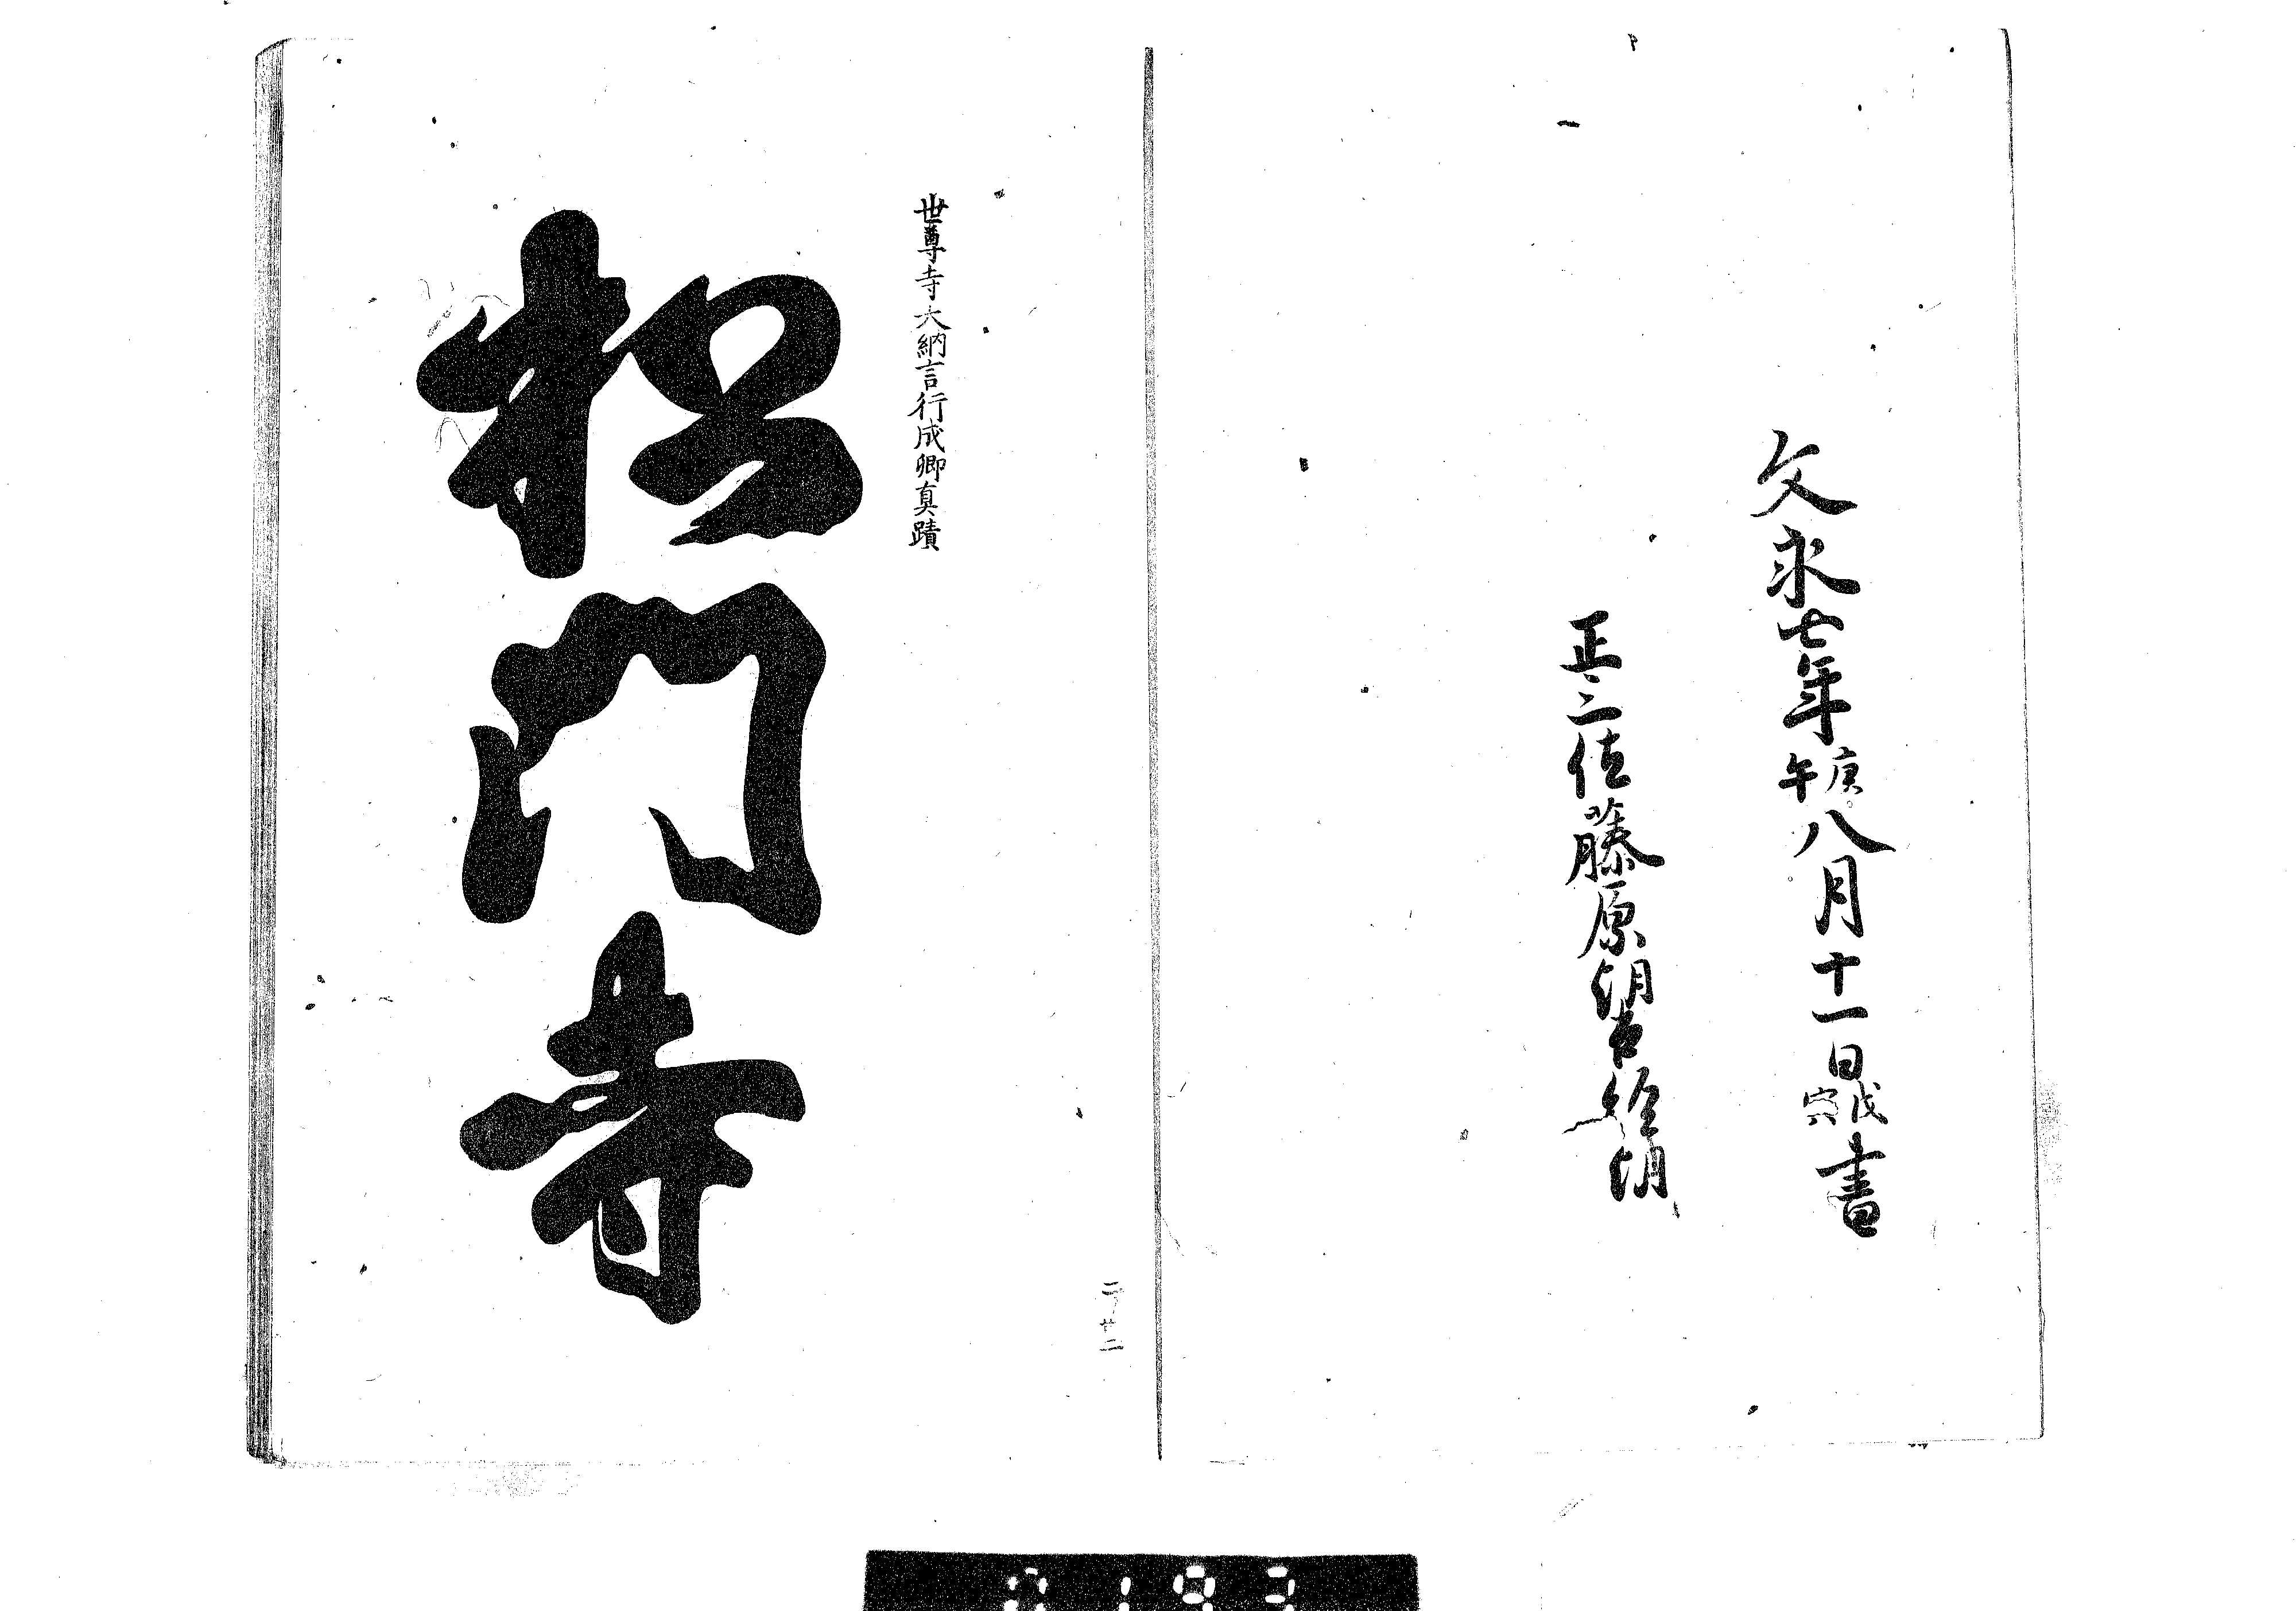 文永七年庚午八月十一日戊寅書
正三位藤原朝臣経朝
世尊寺大納言行成卿真蹟
松門寺
二ノ廿二